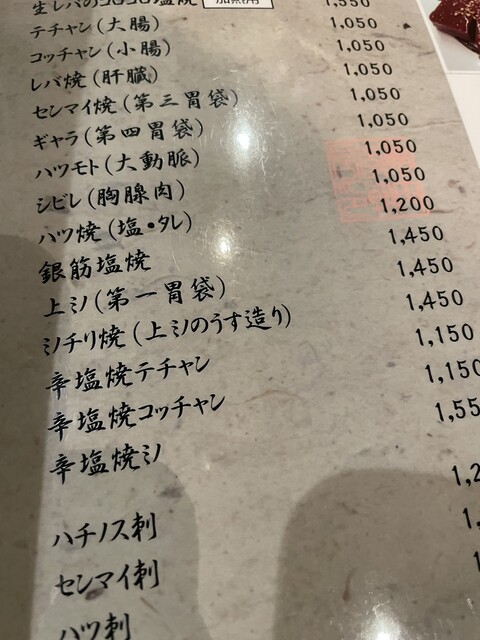 生レバのコロコロ塩焼 加熱用 1,550
テチャン(大腸) 1,050
コッチャン(小腸) 1,050
レバ焼(肝臓) 1,050
センマイ焼(第三胃袋) 1,050
ギャラ(第四胃袋) 1,050
ハツモト(大動脈) 1,050
シビレ(胸腺肉) 1,050
ハツ焼(塩・タレ) 1,200
銀筋塩焼 1,450
上ミノ(第一胃袋) 1,450
ミノチリ焼(上ミノのうす造り) 1,450
辛塩焼テチャン 1,150
辛塩焼コッチャン 1,150
辛塩焼ミノ 1,55
ハチノス刺 1,2
センマイ刺 1,
ハツ刺